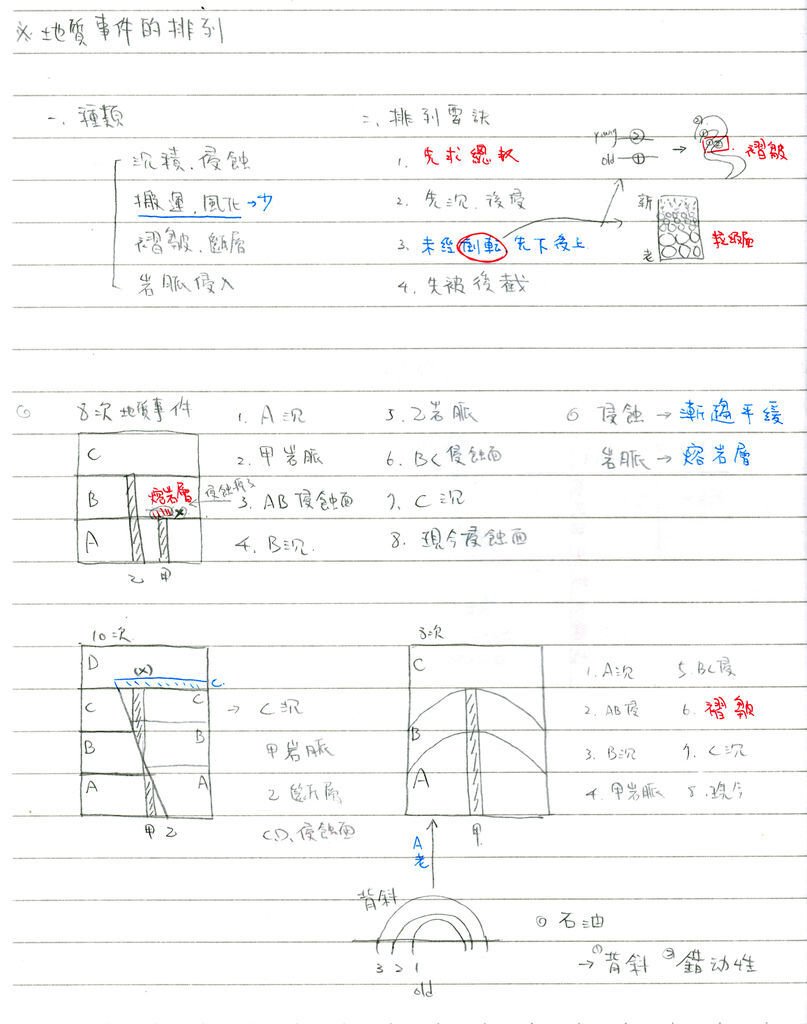 ※地質事件的排列
一. 種類
沉積. 侵蝕
搬運. 風化→少
褶皺. 斷層
岩脈侵入
二. 排列要訣
1. 先求總數
2. 先沉. 後侵
3. 未經倒転 先下後上
4. 先被後截
young ②
old ①
→
褶皺
新
老
粒級層
◎ 8次地質事件
C
B
A
熔岩層
(x)
乙 甲
1. A沉
2. 甲岩脈
3. AB侵蝕面
4. B沉.
5. 乙岩脈
6. BC侵蝕面
7. C沉
8. 現今侵蝕面
◎ 侵蝕→漸趨平緩
岩脈→熔岩層
10次
D
(x)
C.
C C
B B
A A
甲 乙
→ C沉
甲岩脈
乙斷層
CD侵蝕面
8次
C
B
A
甲
1. A沉
2. AB侵
3. B沉
4. 甲岩脈
5. BC侵
6. 褶皺
7. C沉
8. 現今
A老
背斜
3 2 1
old
◎ 石油
→①背斜 ②錯动性